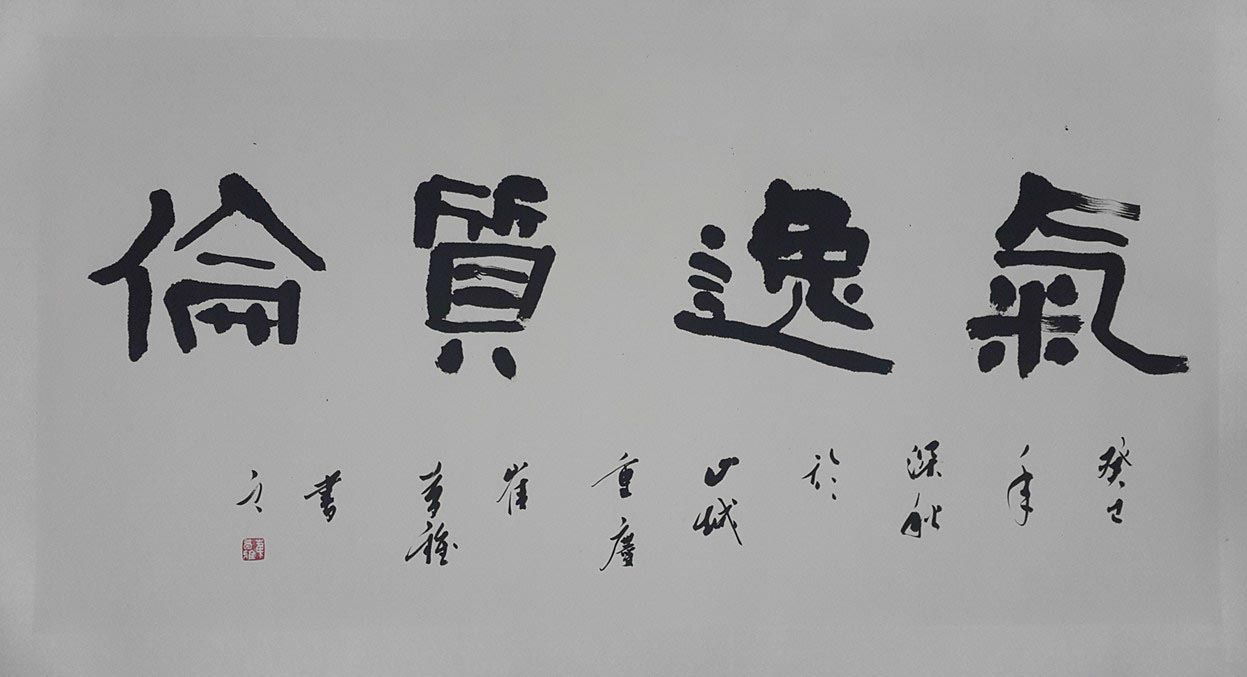 氣逸質倫
癸巳年深秋於山城重慶崔
書之